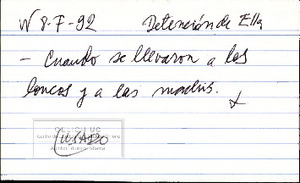 N 8-7-92 Detención de Ella
- Cuando se llevaron a las
loncos y a las madres.
JUZGADO